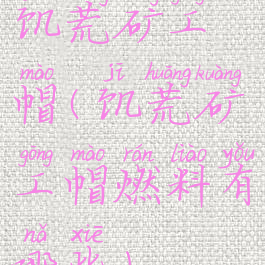 饥荒矿工
mào jī huāng kuàng
帽(饥荒矿
gōng mào rán liào yǒu
工帽燃料有
nǎ xiē
哪些)